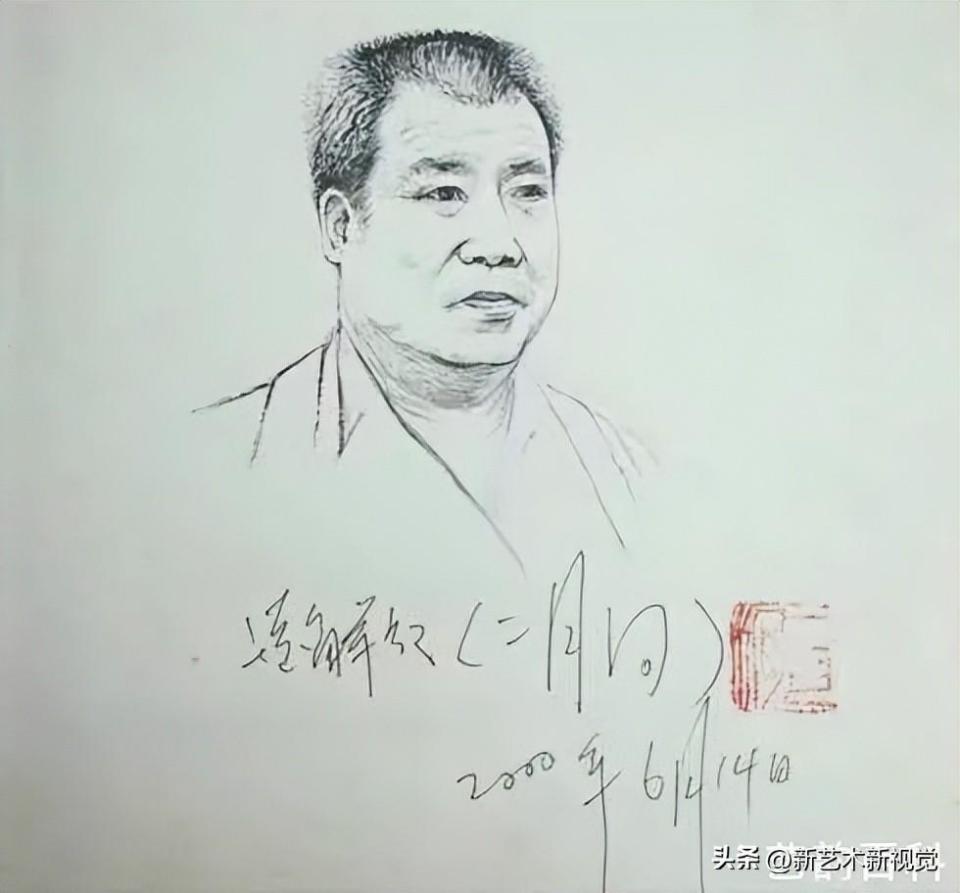 凌解放(二月河)
2000年6月14日
艺韵百科
头条 @新艺术新视觉